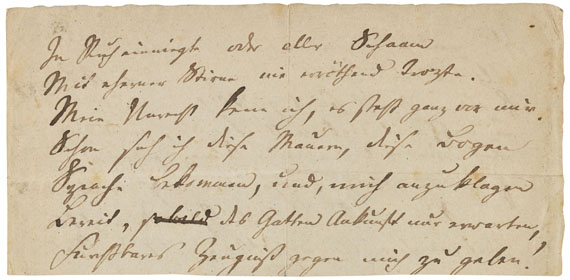 In Ruh einwiegte oder aller Schaam
Mit eherner Stirne nie erröthend trozte.
Mein Unrecht kenn ich, es steht ganz vor mir.
Schon seh ich diese Mauern, diese Bogen
Sprache bekommen, und, mich anzuklagen
Bereit, des Gatten Ankunft nur erwarten,
Furchtbares Zeugniß gegen mich zu geben!